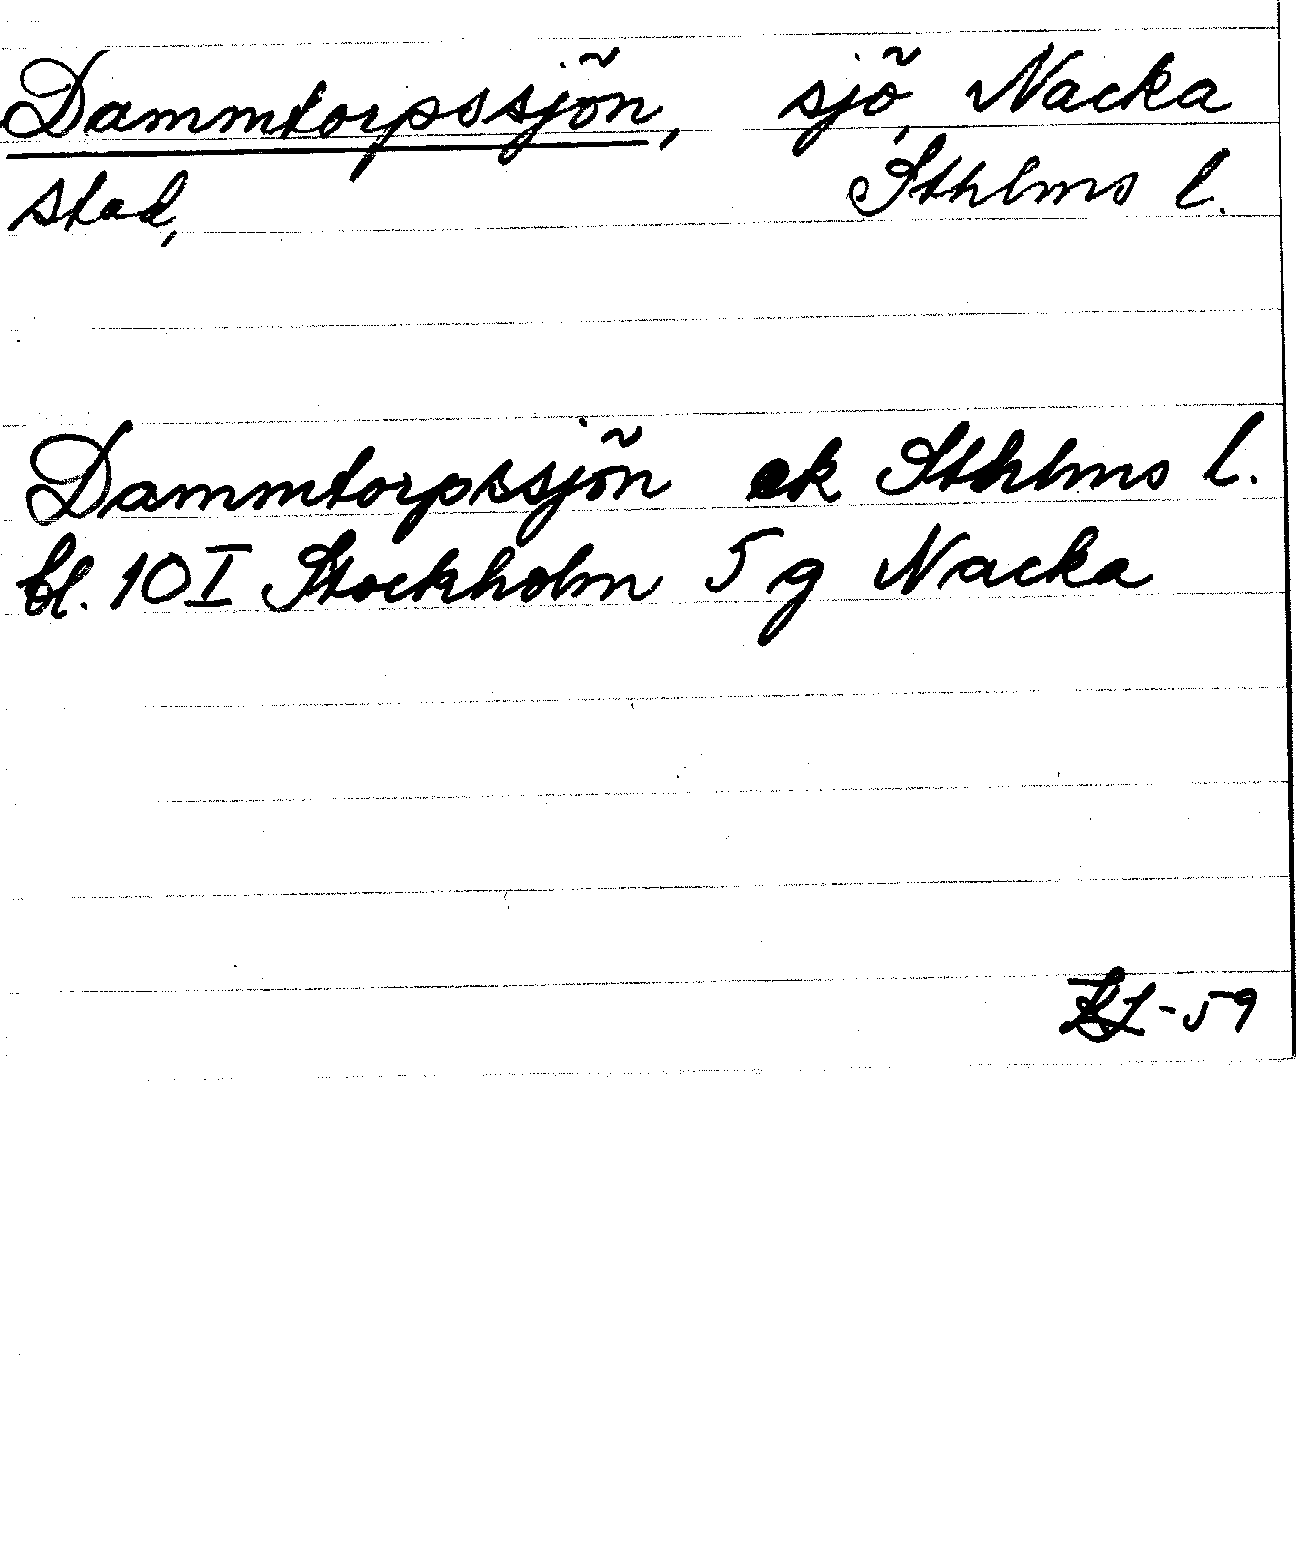 Dammtorpssjön, sjö, Nacka
stad, Sthlms l.
Dammtorpssjön ek Sthlms l.
bl. 10 I Stockholm 5 g Nacka
-59